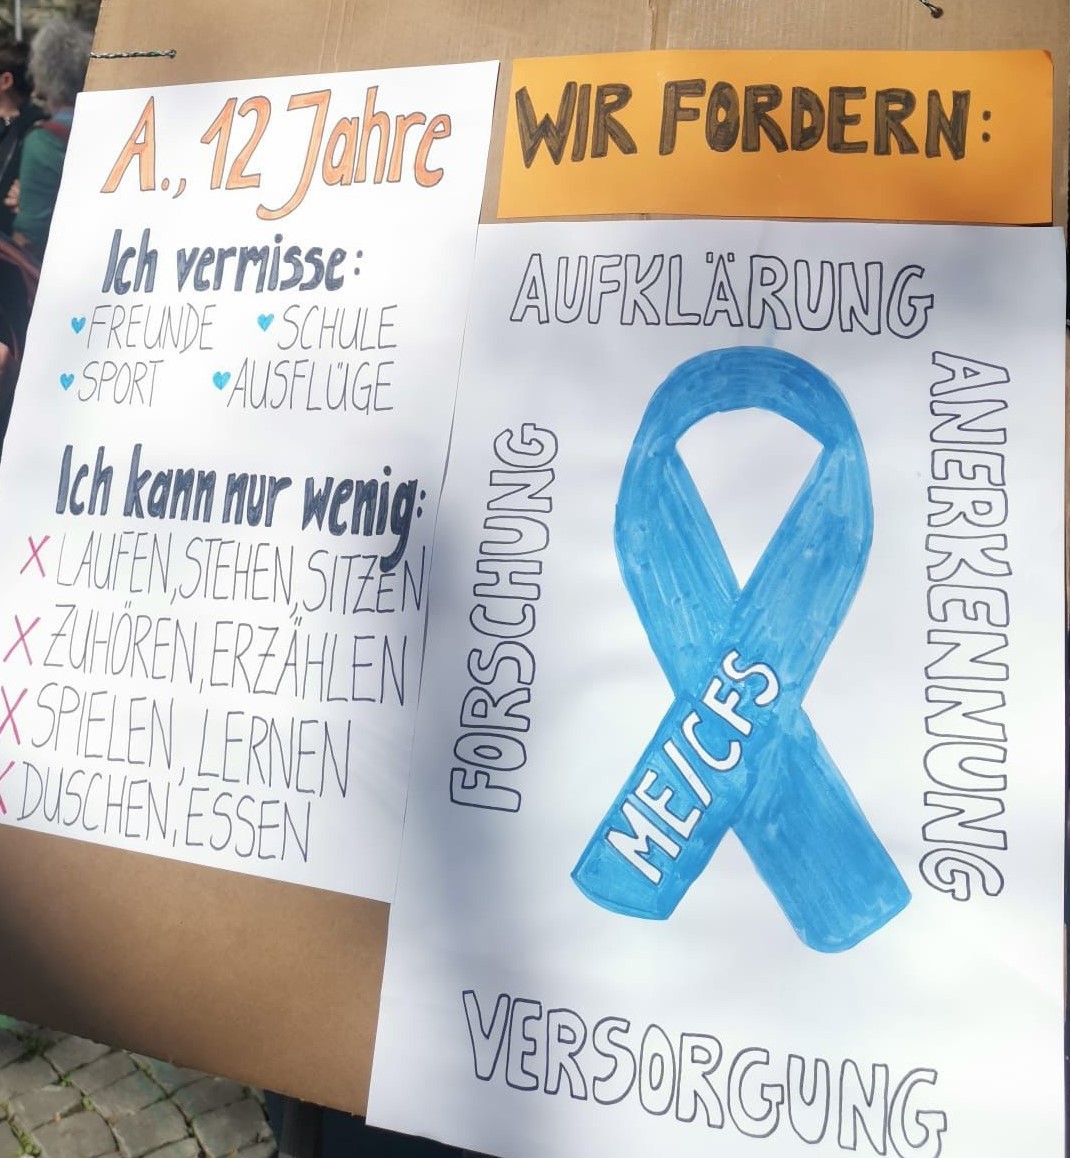 A., 12 Jahre
Ich vermisse:
FREUNDE SCHULE
SPORT AUSFLÜGE
Ich kann nur wenig:
X LAUFEN, STEHEN, SITZEN
X ZUHÖREN, ERZÄHLEN
X SPIELEN, LERNEN
X DUSCHEN, ESSEN
WIR FORDERN:
AUFKLÄRUNG
ANERKENNUNG
FORSCHUNG
ME/CFS
VERSORGUNG